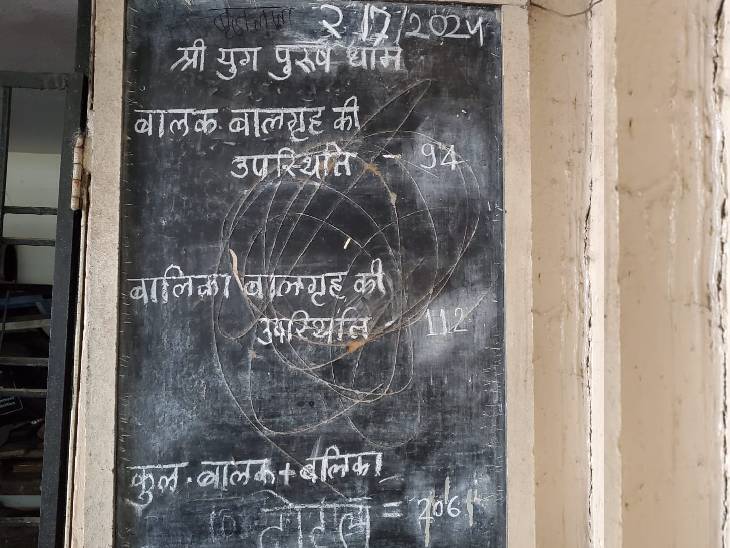 2/7/2024
श्री युग पुरुष धाम
बालक बालगृह की
उपस्थिति - 94
बालिका बालगृह की
उपस्थिति - 112
कुल. बालक + बलिका
टोटल = 206